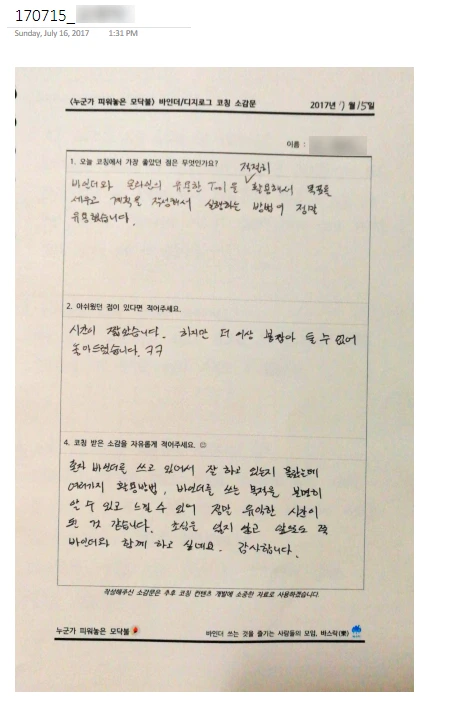 170715_
Sunday, July 16, 2017 1:31 PM
<누군가 피워놓은 모닥불> 바인더/디지로그 코칭 소감문 2017년 7월 15일
이름 :
1. 오늘 코칭에서 가장 좋았던 점은 무엇인가요?
적절히
바인더와 온라인의 유용한 Tool을 ✓ 활용해서 목표를
세우고 계획을 작성해서 실행하는 방법이 정말
유용했습니다.
2. 아쉬웠던 점이 있다면 적어주세요.
시간이 짧았습니다. 하지만 더 이상 붙잡아 둘 수 없어
놓아드렸습니다. ㅋㅋ
4. 코칭 받은 소감을 자유롭게 적어주세요. ☺
혼자 바인더를 쓰고 있어서 잘 하고 있는지 몰랐는데
여러가지 활용방법, 바인더를 쓰는 목적을 분명히
알 수 있고 느낄 수 있어 정말 유익한 시간이
된 것 같습니다. 초심을 잃지 않고 앞으로도 쭉
바인더와 함께 하고 싶네요. 감사합니다.
작성해주신 소감문은 추후 코칭 컨텐츠 개발에 소중한 자료로 사용하겠습니다.
누군가 피워놓은 모닥불 바인더 쓰는 것을 즐기는 사람들의 모임, 바스락(樂)